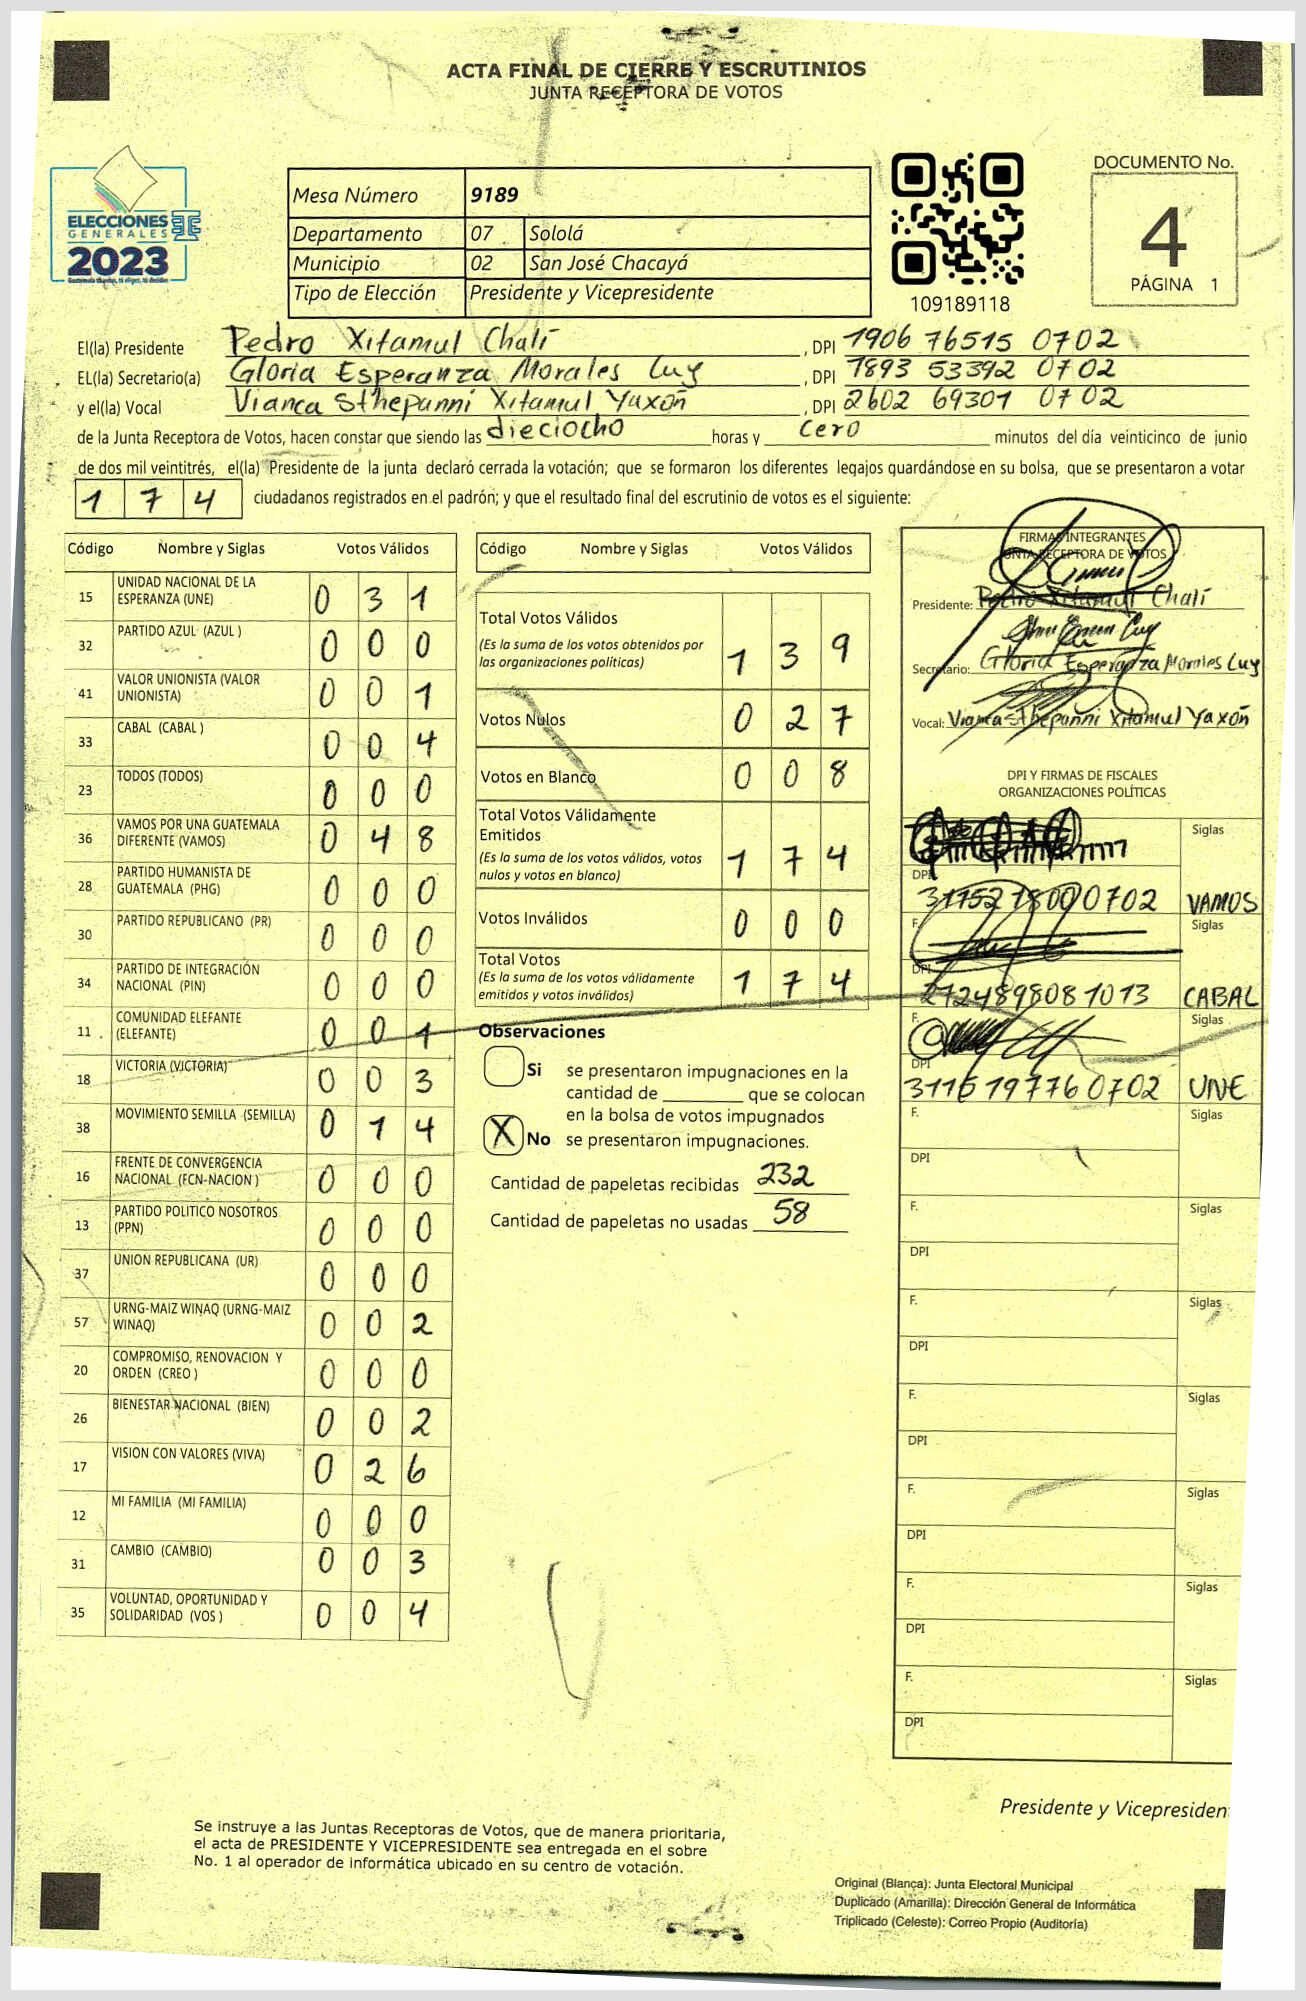 ACTA FINAL DE CIERRE Y ESCRUTINIOS
JUNTA RECEPTORA DE VOTOS
ELECCIONES
GENERALES
2023
Mesa Número 9189
Departamento 07 Sololá
Municipio 02 San José Chacayá
Tipo de Elección Presidente y Vicepresidente
109189118
DOCUMENTO No.
4
PÁGINA 1
El(la) Presidente Pedro Xitamul Chalí, DPI 1906 76515 0702
EL(la) Secretario(a) Gloria Esperanza Morales Cuy, DPI 1893 53392 0702
y el(la) Vocal Vianca Sthepanni Xitamul Yaxón, DPI 2602 69301 0702
de la Junta Receptora de Votos, hacen constar que siendo las dieciocho horas y cero minutos del día veinticinco de junio
de dos mil veintitrés, el(la) Presidente de la junta declaró cerrada la votación; que se formaron los diferentes legajos quardándose en su bolsa, que se presentaron a votar
1 7 4 ciudadanos registrados en el padrón; y que el resultado final del escrutinio de votos es el siguiente:
Código Nombre y Siglas Votos Válidos
15 UNIDAD NACIONAL DE LA ESPERANZA (UNE) 0 3 1
32 PARTIDO AZUL (AZUL ) 0 0 0
41 VALOR UNIONISTA (VALOR UNIONISTA) 0 0 1
33 CABAL (CABAL ) 0 0 4
23 TODOS (TODOS) 0 0 0
36 VAMOS POR UNA GUATEMALA DIFERENTE (VAMOS) 0 4 8
28 PARTIDO HUMANISTA DE GUATEMALA (PHG) 0 0 0
30 PARTIDO REPUBLICANO (PR) 0 0 0
34 PARTIDO DE INTEGRACIÓN NACIONAL (PIN) 0 0 0
11 COMUNIDAD ELEFANTE (ELEFANTE) 0 0 1
18 VICTORIA (VICTORIA) 0 0 3
38 MOVIMIENTO SEMILLA (SEMILLA) 0 1 4
16 FRENTE DE CONVERGENCIA NACIONAL (FCN-NACION ) 0 0 0
13 PARTIDO POLITICO NOSOTROS (PPN) 0 0 0
37 UNION REPUBLICANA (UR) 0 0 0
57 URNG-MAIZ WINAQ (URNG-MAIZ WINAQ) 0 0 2
20 COMPROMISO, RENOVACION Y ORDEN (CREO ) 0 0 0
26 BIENESTAR NACIONAL (BIEN) 0 0 2
17 VISION CON VALORES (VIVA) 0 2 6
12 MI FAMILIA (MI FAMILIA) 0 0 0
31 CAMBIO (CAMBIO) 0 0 3
35 VOLUNTAD, OPORTUNIDAD Y SOLIDARIDAD (VOS ) 0 0 4
Código Nombre y Siglas Votos Válidos
Total Votos Válidos
(Es la suma de los votos obtenidos por
las organizaciones políticas) 1 3 9
Votos Nulos 0 2 7
Votos en Blanco 0 0 8
Total Votos Válidamente
Emitidos
(Es la suma de los votos válidos, votos
nulos y votos en blanco) 1 7 4
Votos Inválidos 0 0 0
Total Votos
(Es la suma de los votos válidamente
emitidos y votos inválidos) 1 7 4
Observaciones
Si se presentaron impugnaciones en la
cantidad de ________ que se colocan
en la bolsa de votos impugnados
X No se presentaron impugnaciones.
Cantidad de papeletas recibidas 232
Cantidad de papeletas no usadas 58
FIRMAS INTEGRANTES
JUNTA RECEPTORA DE VOTOS
Presidente: Pedro Xitamul Chalí
Secretario: Gloria Esperanza Morales Cuy
Vocal: Vianca Sthepanni Xitamul Yaxón
DPI Y FIRMAS DE FISCALES
ORGANIZACIONES POLÍTICAS
Siglas
DPI VAMOS
F. Siglas
DPI 2124898081013 CABAL
F. Siglas
DPI UNE
F. Siglas
DPI
F. Siglas
DPI
F. Siglas
DPI
F. Siglas
DPI
F. Siglas
DPI
F. Siglas
DPI
F. Siglas
DPI
Presidente y Vicepresiden
Se instruye a las Juntas Receptoras de Votos, que de manera prioritaria,
el acta de PRESIDENTE Y VICEPRESIDENTE sea entregada en el sobre
No. 1 al operador de informática ubicado en su centro de votación.
Original (Blanca): Junta Electoral Municipal
Duplicado (Amarilla): Dirección General de Informática
Triplicado (Celeste): Correo Propio (Auditoría)